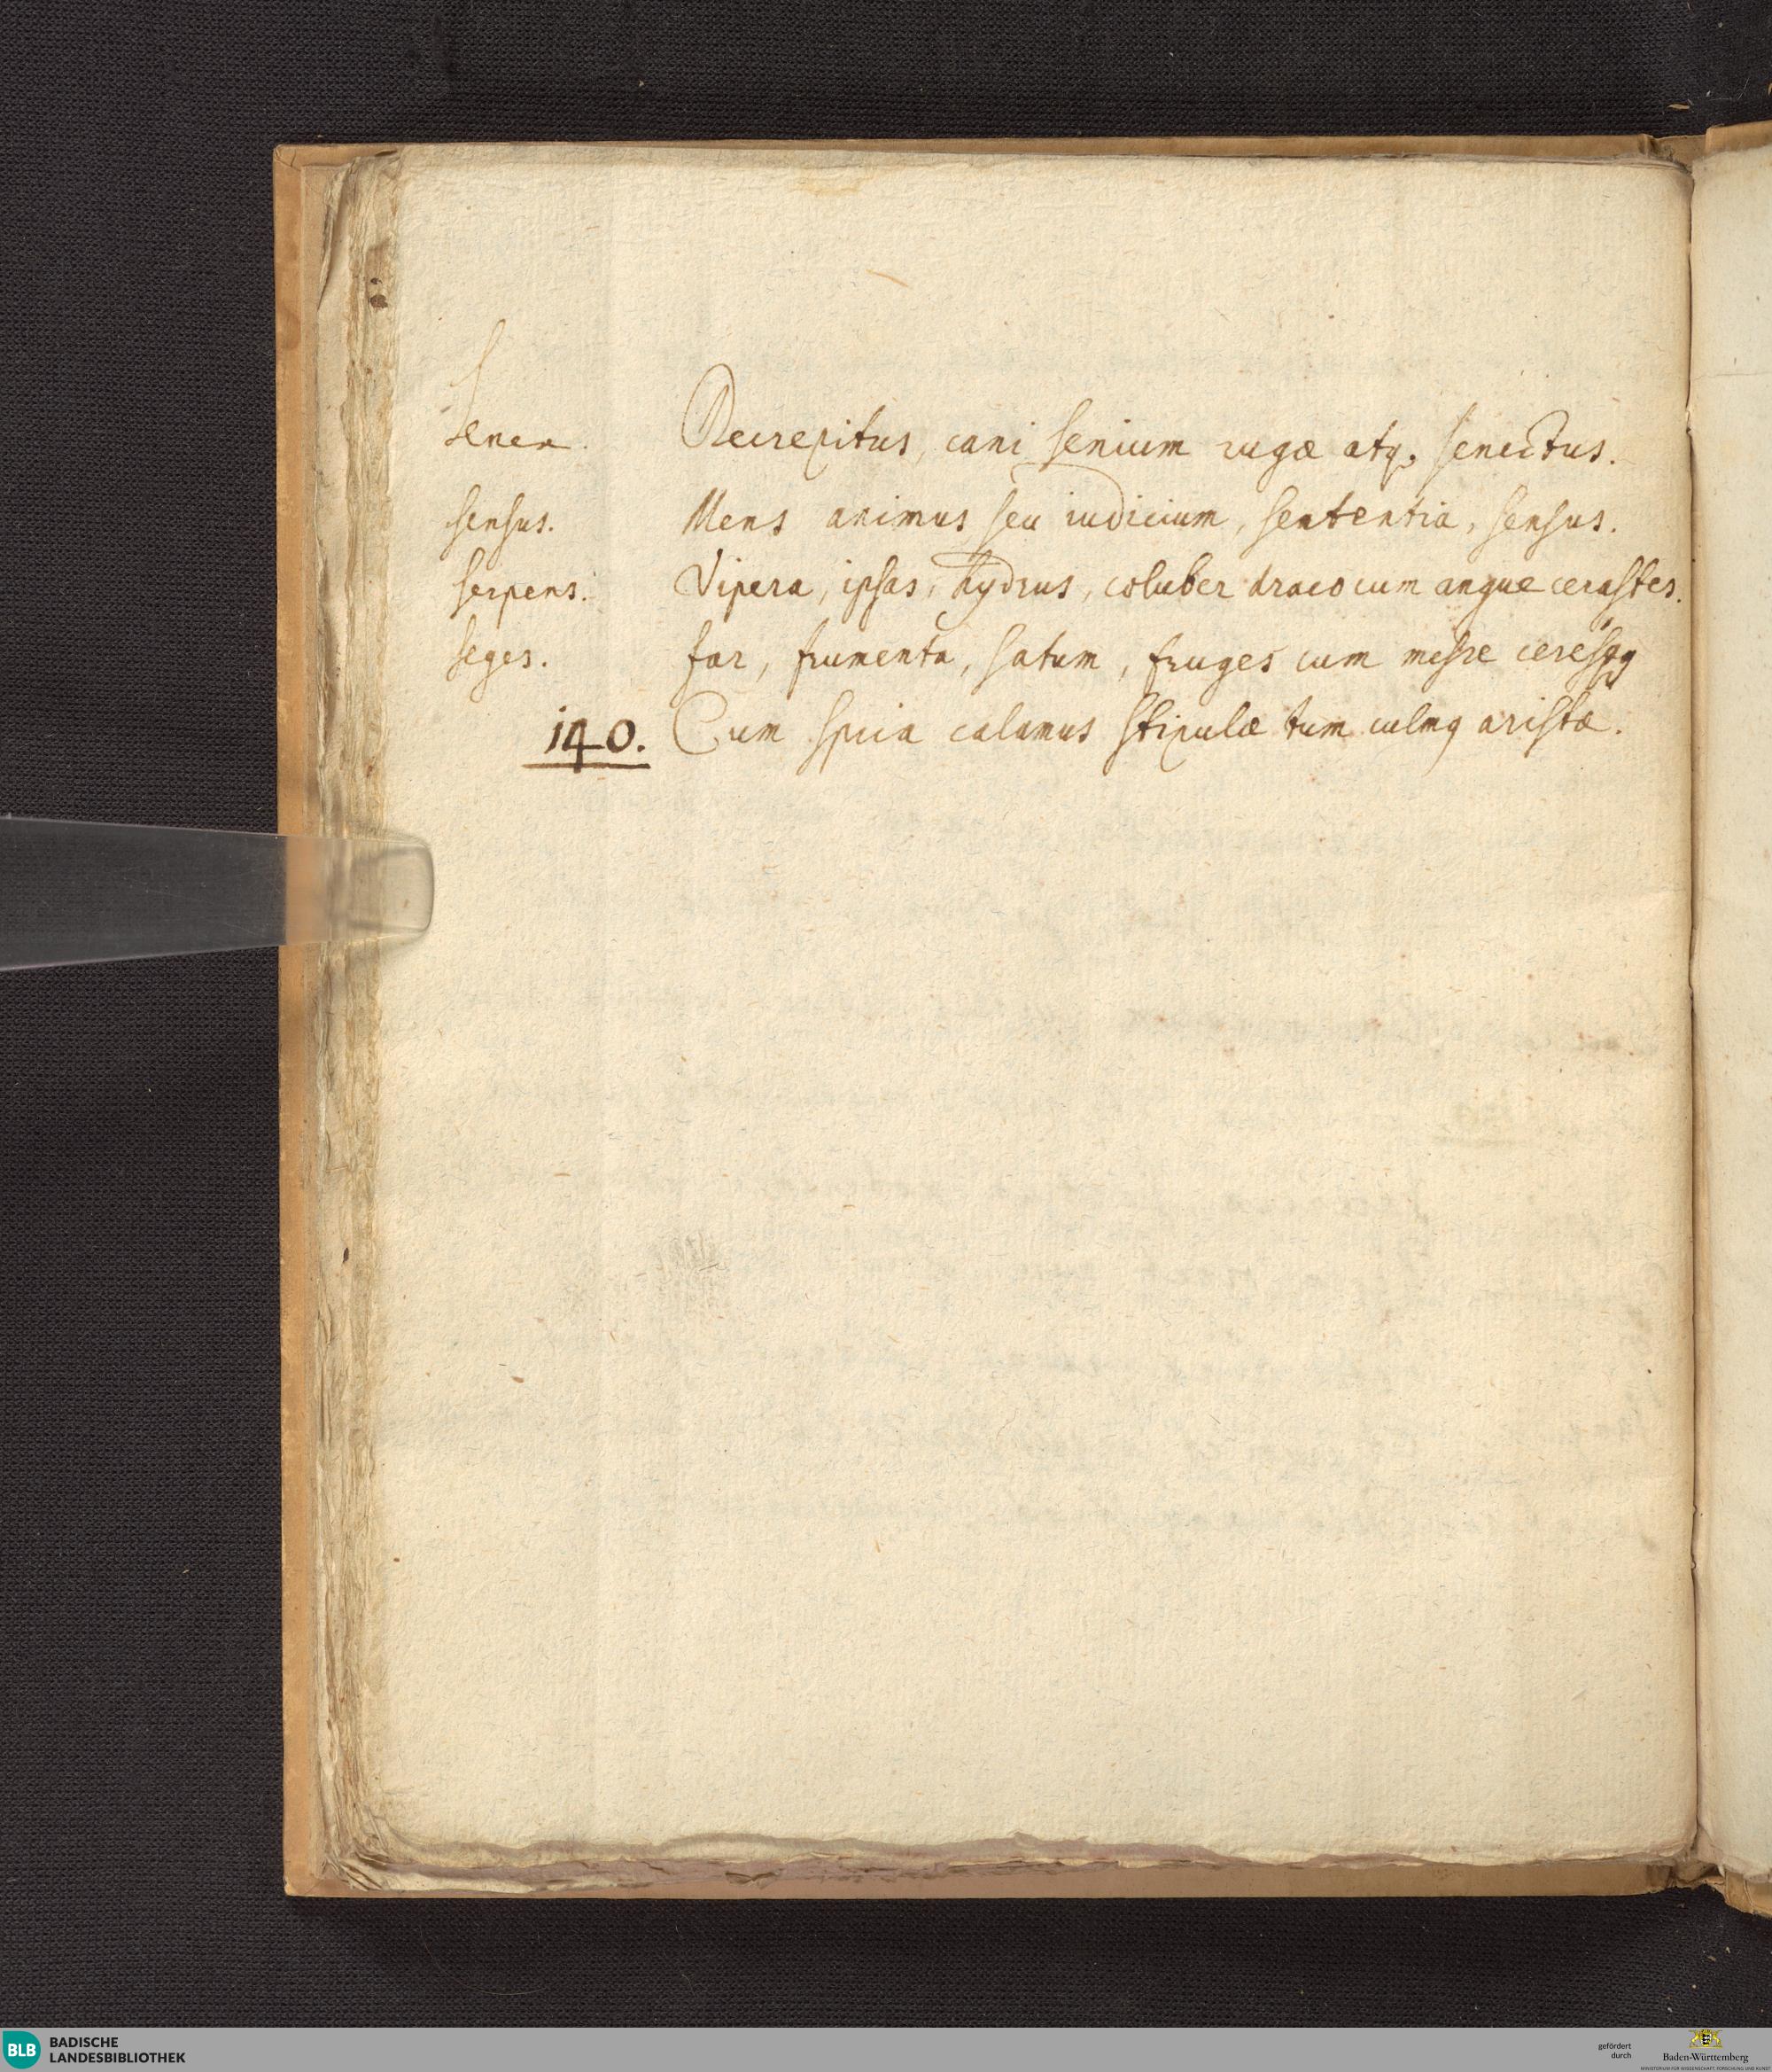 Senex. Decrepitus, cani senium rugæ atq. senectus.
sensus. Mens animus seu iudicium, sententia, sensus.
serpens. Vipera, ipsas, hydrus, coluber draco cum angue cerastes.
seges. far, frumenta, satum, fruges cum messe
140. Cum spica calamus stipulæ tum culmq aristæ.
BLB BADISCHE
LANDESBIBLIOTHEK
gefördert
durch
Baden-Württemberg
MINISTERIUM FÜR WISSENSCHAFT, FORSCHUNG UND KUNST